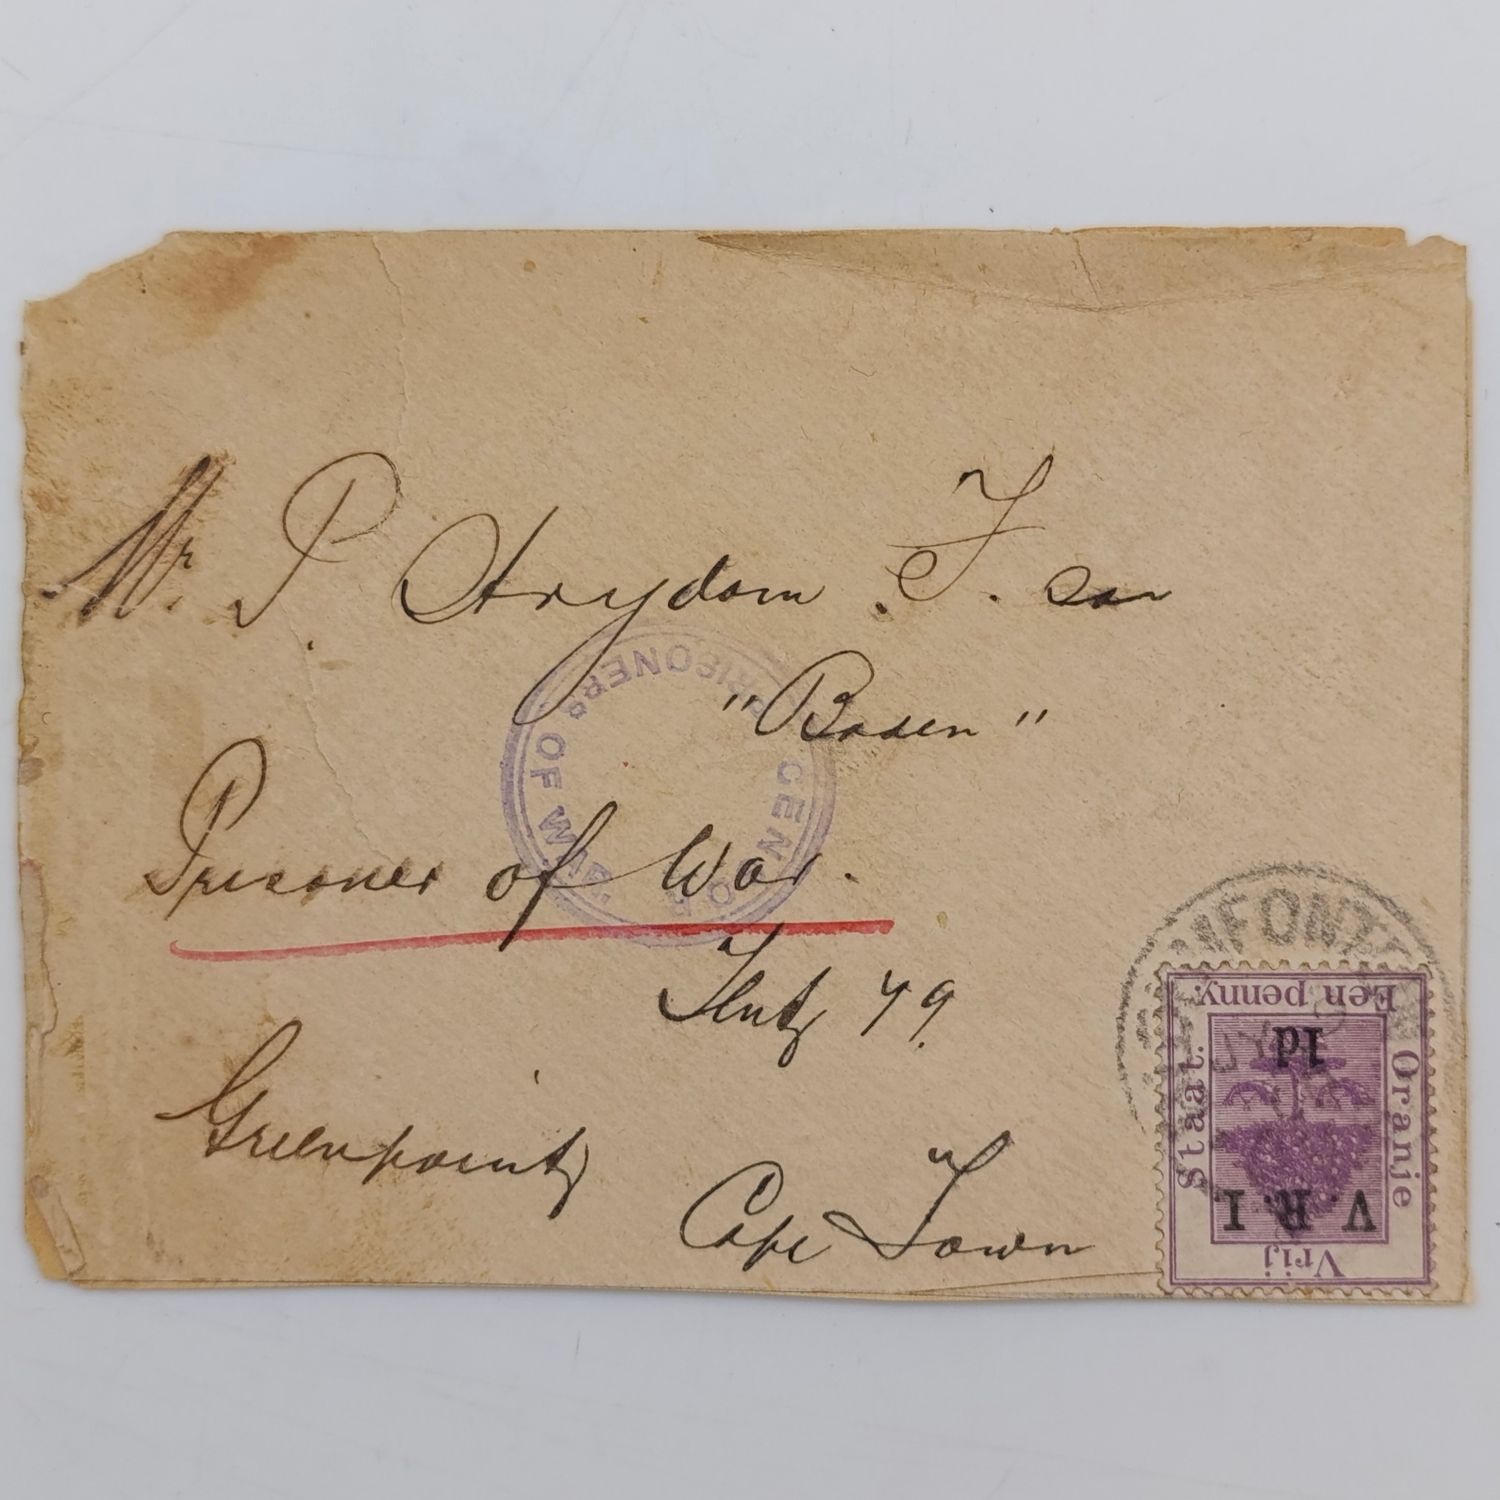 Mr. P. Strydom F. son
"Boden"
Prisoner of War.
Tent 79
Greenpoint
Cape Town
PRISONERS OF WAR
CENSOR
FONT
Een penny.
1d
Oranje
Staat.
V. R. I.
Vrij